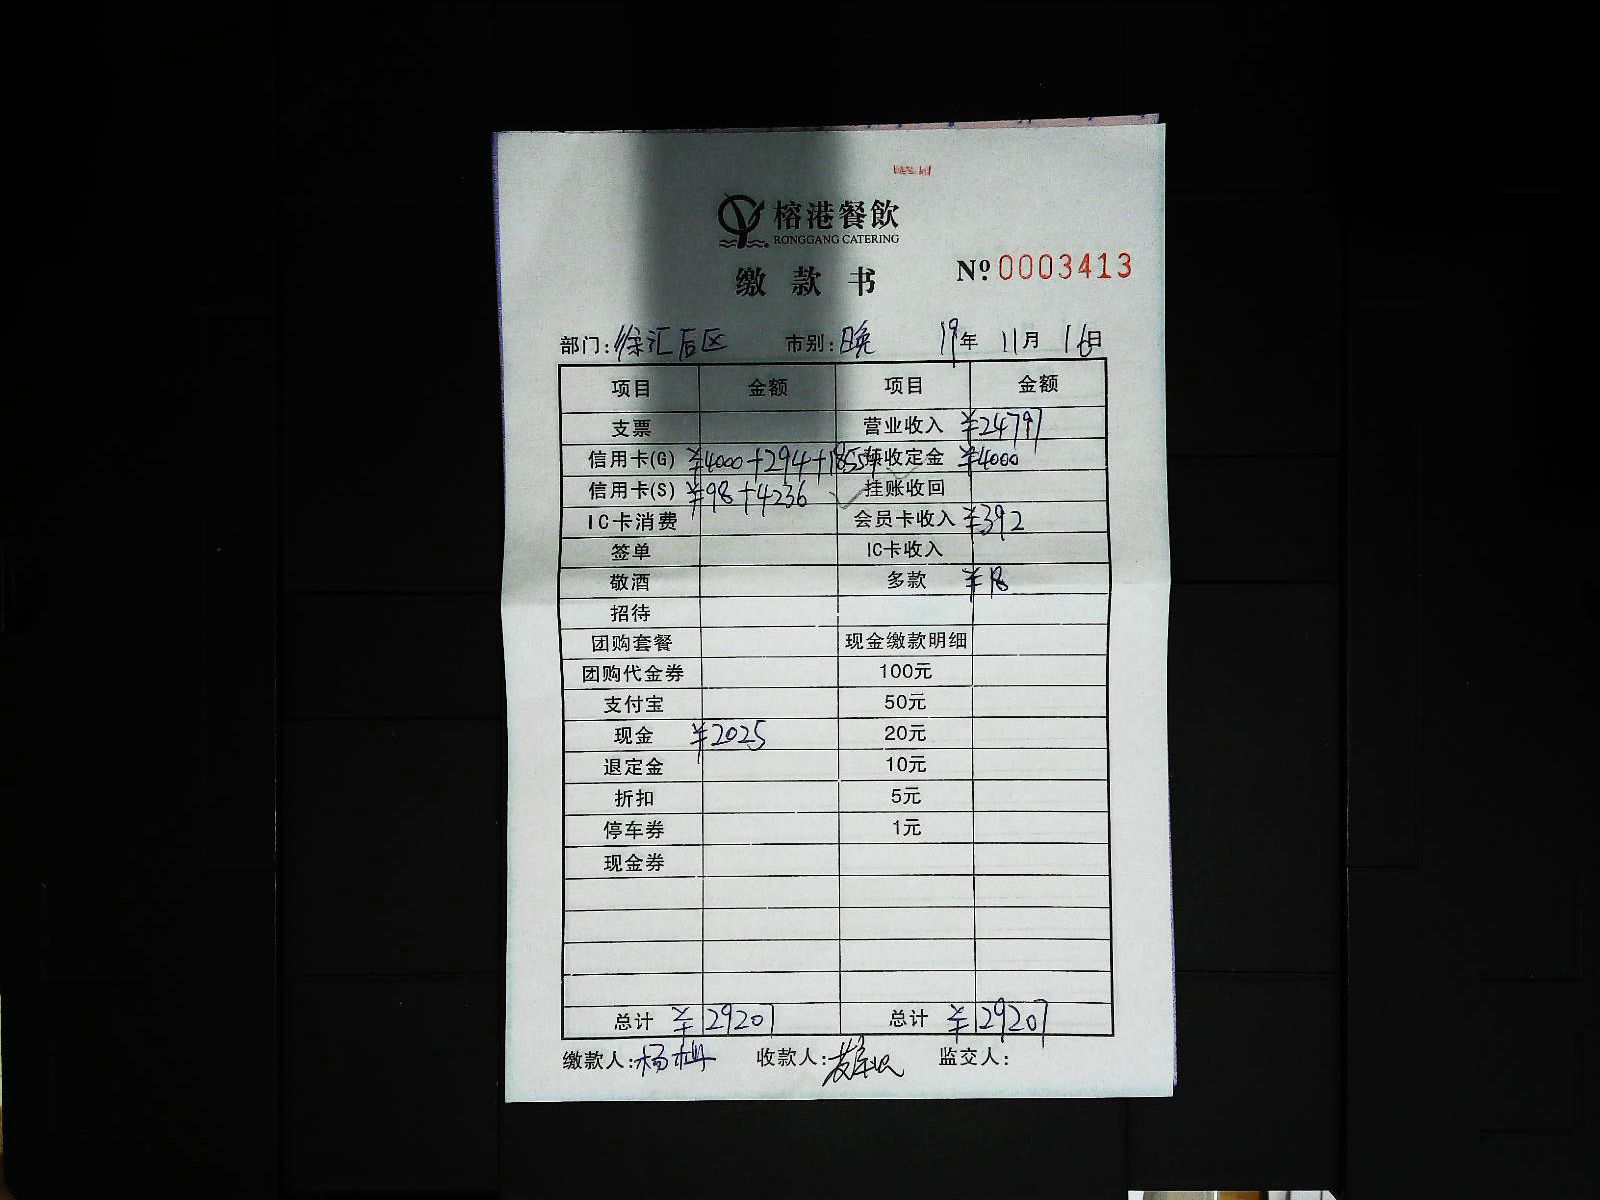 榕港餐飲
RONGGANG CATERING
缴款书
Nº 0003413
部门:徐汇后区 市别:晚 19年 11月 16日
项目 金额 项目 金额
支票 营业收入 ¥24797
信用卡(G) ¥4000+294+18554 预收定金 ¥4000
信用卡(S) ¥98+4236 挂账收回
IC卡消费 会员卡收入 ¥392
签单 IC卡收入
敬酒 多款 ¥18
招待
团购套餐 现金缴款明细
团购代金券 100元
支付宝 50元
现金 ¥2025 20元
退定金 10元
折扣 5元
停车券 1元
现金券
总计 ¥29207 总计 ¥29207
缴款人:杨 收款人: 监交人: